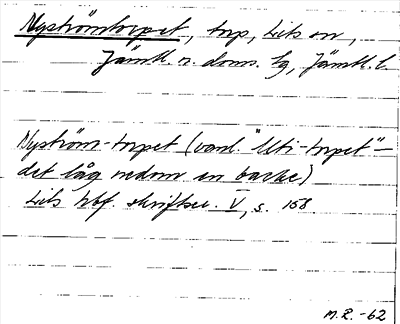 Nyströmtorpet, trp, Lits sn,
Jämtl. n. doms. tg, Jämtl. l.
Nyström-torpet (vard. "Uti-torpet" -
det låg nedom en backe)
Lits hbf. skriftser. V, s. 158
M.R. -62